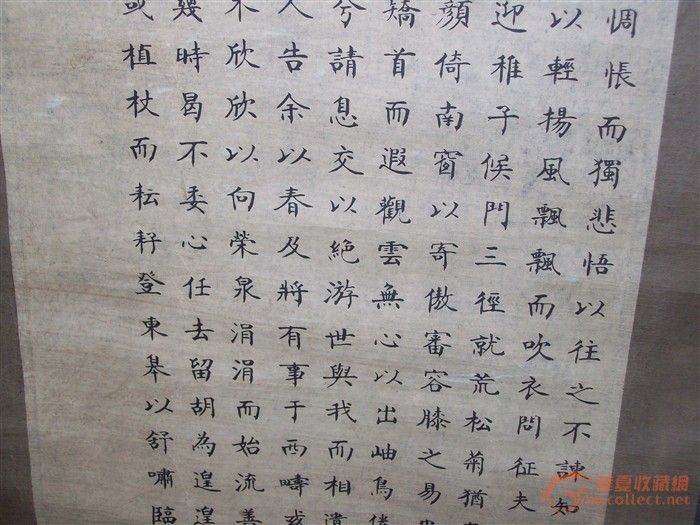 惆悵而獨悲悟以往之不諫知
以輕揚風飄飄而吹衣問征夫
迎稚子候門三徑就荒松菊猶
顏倚南窗以寄傲審容膝之易
矯首而遐觀雲無心以出岫鳥倦
兮請息交以絕游世與我而相遺
人告余以春及將有事于西疇或
木欣欣以向榮泉涓涓而始流善
幾時曷不委心任去留胡為遑遑
或植杖而耘耔登東皋以舒嘯臨
華夏收藏網
mycollect.net